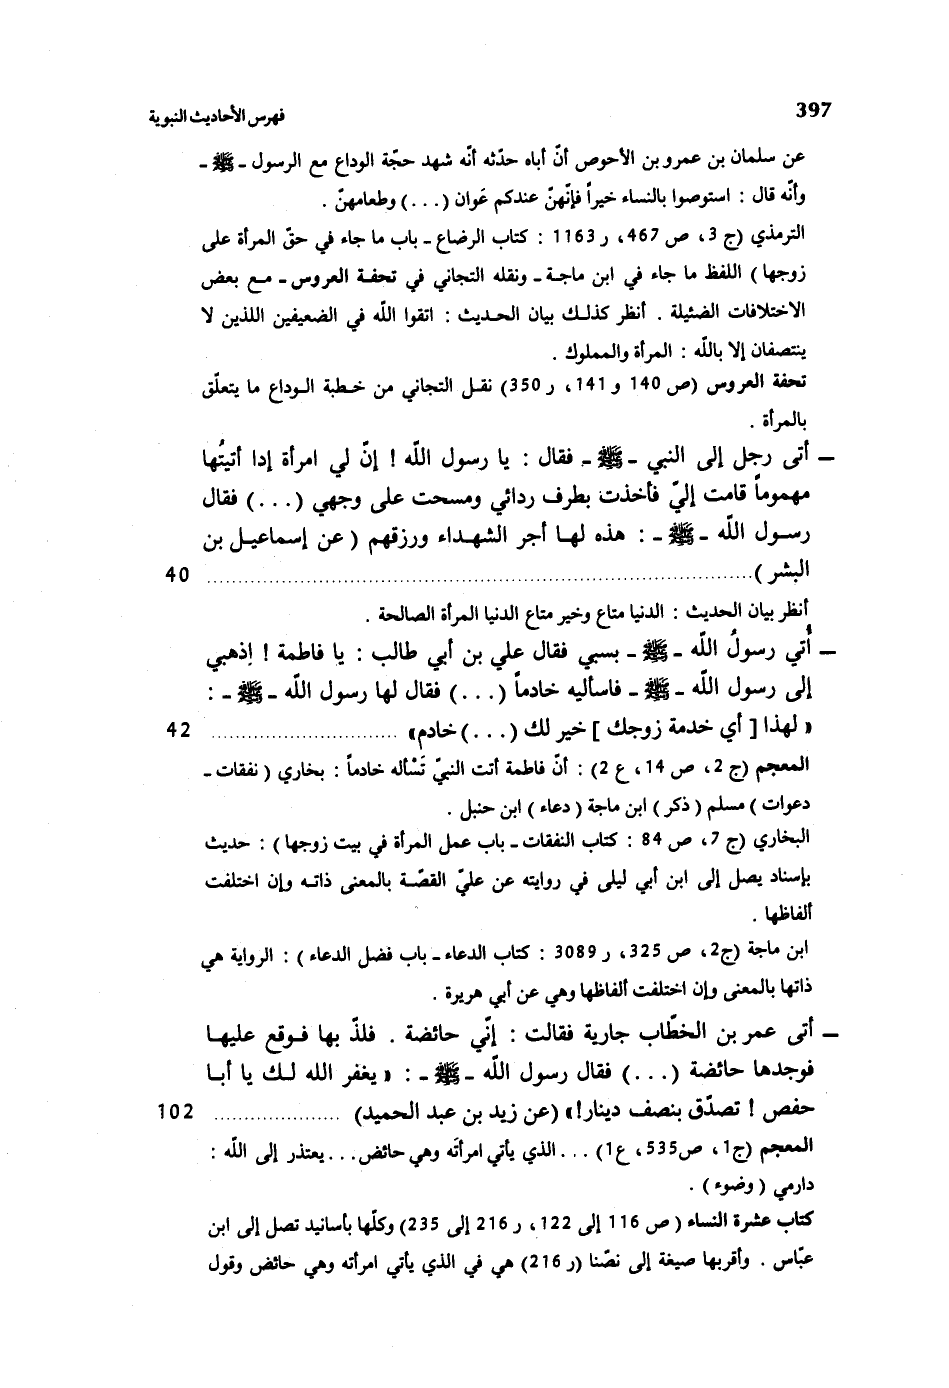 397
فهرس الأحاديث النبوية
عن سلمان بن عمرو بن الأحوص أنّ أباه حدّثه أنّه شهد حجّة الوداع مع الرسول ـ ﷺ ـ
وأنّه قال : استوصوا بالنساء خيراً فإنّهنّ عندكم عَوان (...) وطعامهنّ .
الترمذي (ج 3، ص 467، ر 1163 : كتاب الرضاع ـ باب ما جاء في حقّ المرأة على
زوجها) اللفظ ما جاء في ابن ماجة ـ ونقله التجاني في تحفة العروس ـ مع بعض
الاختلافات الضئيلة . أنظر كذلك بيان الحديث : اتقوا اللّه في الضعيفين اللذين لا
ينتصفان إلا باللّه : المرأة والمملوك .
تحفة العروس (ص 140 و 141، ر 350) نقل التجاني من خطبة الوداع ما يتعلّق
بالمرأة .
ـ أتى رجل إلى النبي ـ ﷺ ـ فقال : يا رسول اللّه ! إنّ لي امرأة إدا أتيتُها
مهموماً قامت إليّ فأخذت بطرف ردائي ومسحت على وجهي (...) فقال
رسول اللّه ـ ﷺ ـ : هذه لها أجر الشهداء ورزقهم (عن إسماعيل بن
البشر) ........................................ 40
أنظر بيان الحديث : الدنيا متاع وخير متاع الدنيا المرأة الصالحة .
ـ أُتي رسولُ اللّه ـ ﷺ ـ بسبي فقال علي بن أبي طالب : يا فاطمة ! إذهبي
إلى رسول اللّه ـ ﷺ ـ فاسأليه خادماً (...) فقال لها رسول اللّه ـ ﷺ ـ :
« لهذا [ أي خدمة زوجك ] خير لك (...) خادم» .................... 42
المعجم (ج 2، ص 14، ع 2) : أنّ فاطمة أتت النبيّ تَسْأله خادماً : بخاري (نفقات ـ
دعوات) مسلم (ذكر) ابن ماجة (دعاء) ابن حنبل .
البخاري (ج 7، ص 84 : كتاب النفقات ـ باب عمل المرأة في بيت زوجها) : حديث
بإسناد يصل إلى ابن أبي ليلى في روايته عن عليّ القصّة بالمعنى ذاته وإن اختلفت
ألفاظها .
ابن ماجة (ج2، ص 325، ر 3089 : كتاب الدعاء ـ باب فضل الدعاء) : الرواية هي
ذاتها بالمعنى وإن اختلفت ألفاظها وهي عن أبي هريرة .
ـ أتى عمر بن الخطّاب جارية فقالت : إنّي حائضة . فلذّ بها فوقع عليها
فوجدها حائضة (...) فقال رسول اللّه ـ ﷺ ـ : « يغفر الله لك يا أبا
حفص ! تصدّق بنصف دينار!» (عن زيد بن عبد الحميد) .................... 102
المعجم (ج1، ص535، ع1) ... الذي يأتي امرأتَه وهي حائض... يعتذر إلى اللّه :
دارمي (وضوء) .
كتاب عشرة النساء (ص 116 إلى 122، ر 216 إلى 235) وكلّها بأسانيد تصل إلى ابن
عبّاس . وأقربها صيغة إلى نصّنا (ر 216) هي في الذي يأتي امرأته وهي حائض وقول